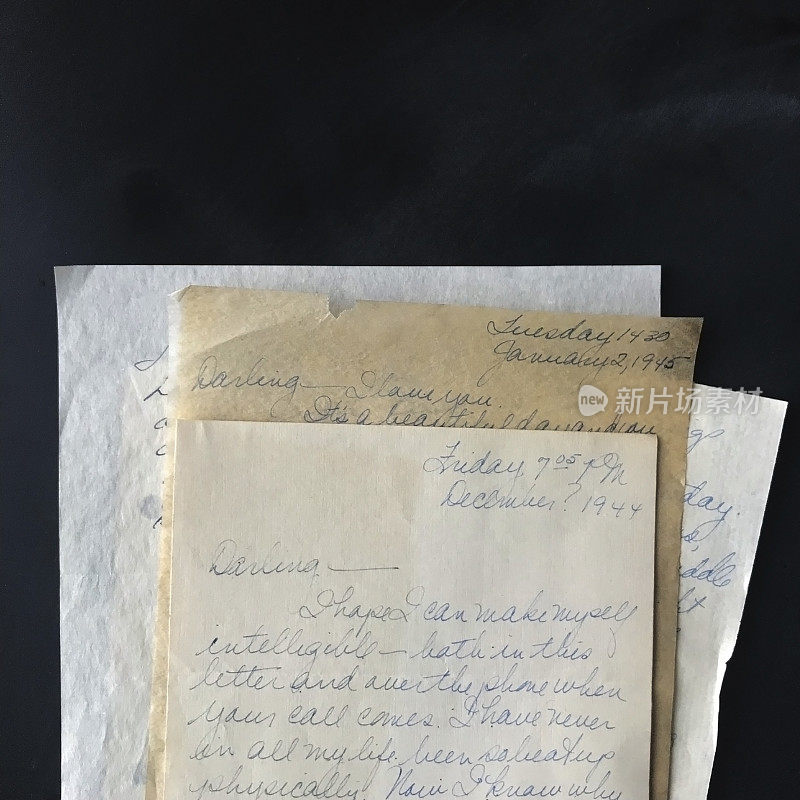 Tuesday 1430
January 2, 1945
Darling — I love you.
It's a beautiful day and you
new 新片场素材
Friday 7 05 PM
December ? 1944
Darling —
I hope I can make myself
intelligible — both in this
letter and over the phone when
your call comes. I have never
in all my life been so beat up
physically. Now I know why
day.
iddle